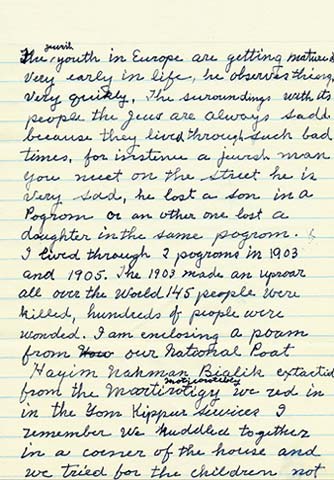 jewish
The youth in Europe are getting matured
very early in life, he observes things
very quickly. The suroundings with its
people the Jews are always sadd.
because they lived through such bad
times, for instince a jewish man
you meet on the street he is
very sad, he lost a son in a
Pogrom or an other one lost a
daughter in the same pogrom.
I lived through 2 pogroms in 1903
and 1905. The 1903 made an uproar
all over the World 145 people were
killed, hundreds of people were
wonded. I am enclosing a poam
from our National Poat
Hayim Nahman Bialik extacted
from the we red in
in the Yom Kippur Sewices I
remember We huddled together
in a corner of the house and
we tried for the children not